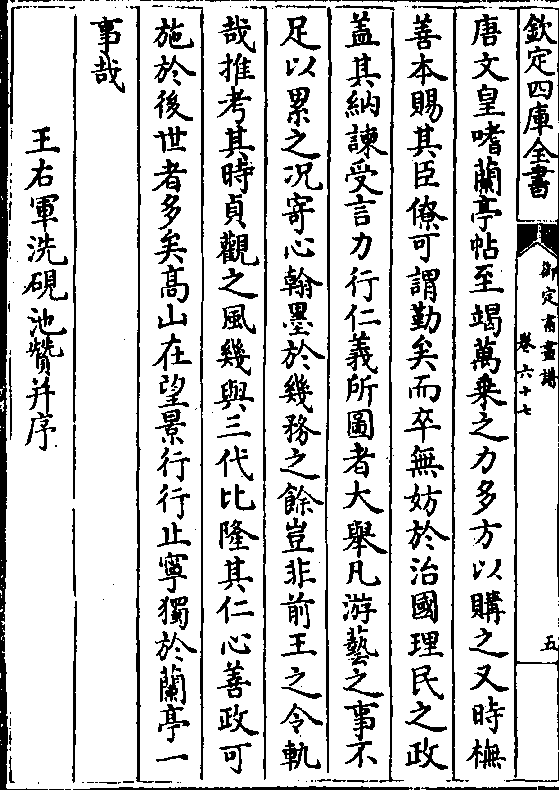 欽定四庫全書
御定書畫譜
卷六十七
五
唐文皇嗜蘭亭帖至竭萬乗之力多方以購之又時橅
善本賜其臣僚可謂勤矣而卒無妨於治國理民之政
葢其納諫受言力行仁義所圖者大舉凡游藝之事不
足以累之况寄心翰墨於幾務之餘豈非前王之令軌
哉推考其時貞觀之風幾與三代比隆其仁心善政可
施於後世者多矣髙山在望景行行止寧獨於蘭亭一
事哉
王右軍洗硯池贊并序